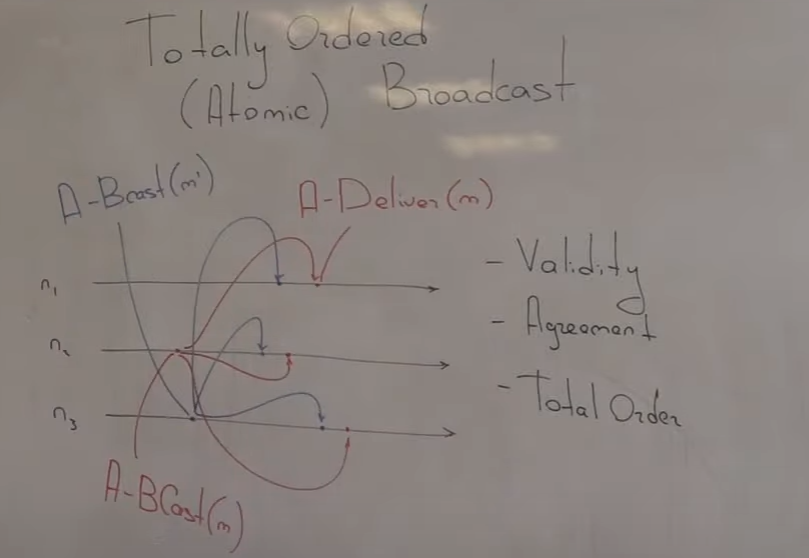 Totally Ordered
(Atomic) Broadcast
A-Bcast(m')
A-Deliver(m)
n1
n2
n3
A-BCast(m)
- Validity
- Agreement
- Total Order